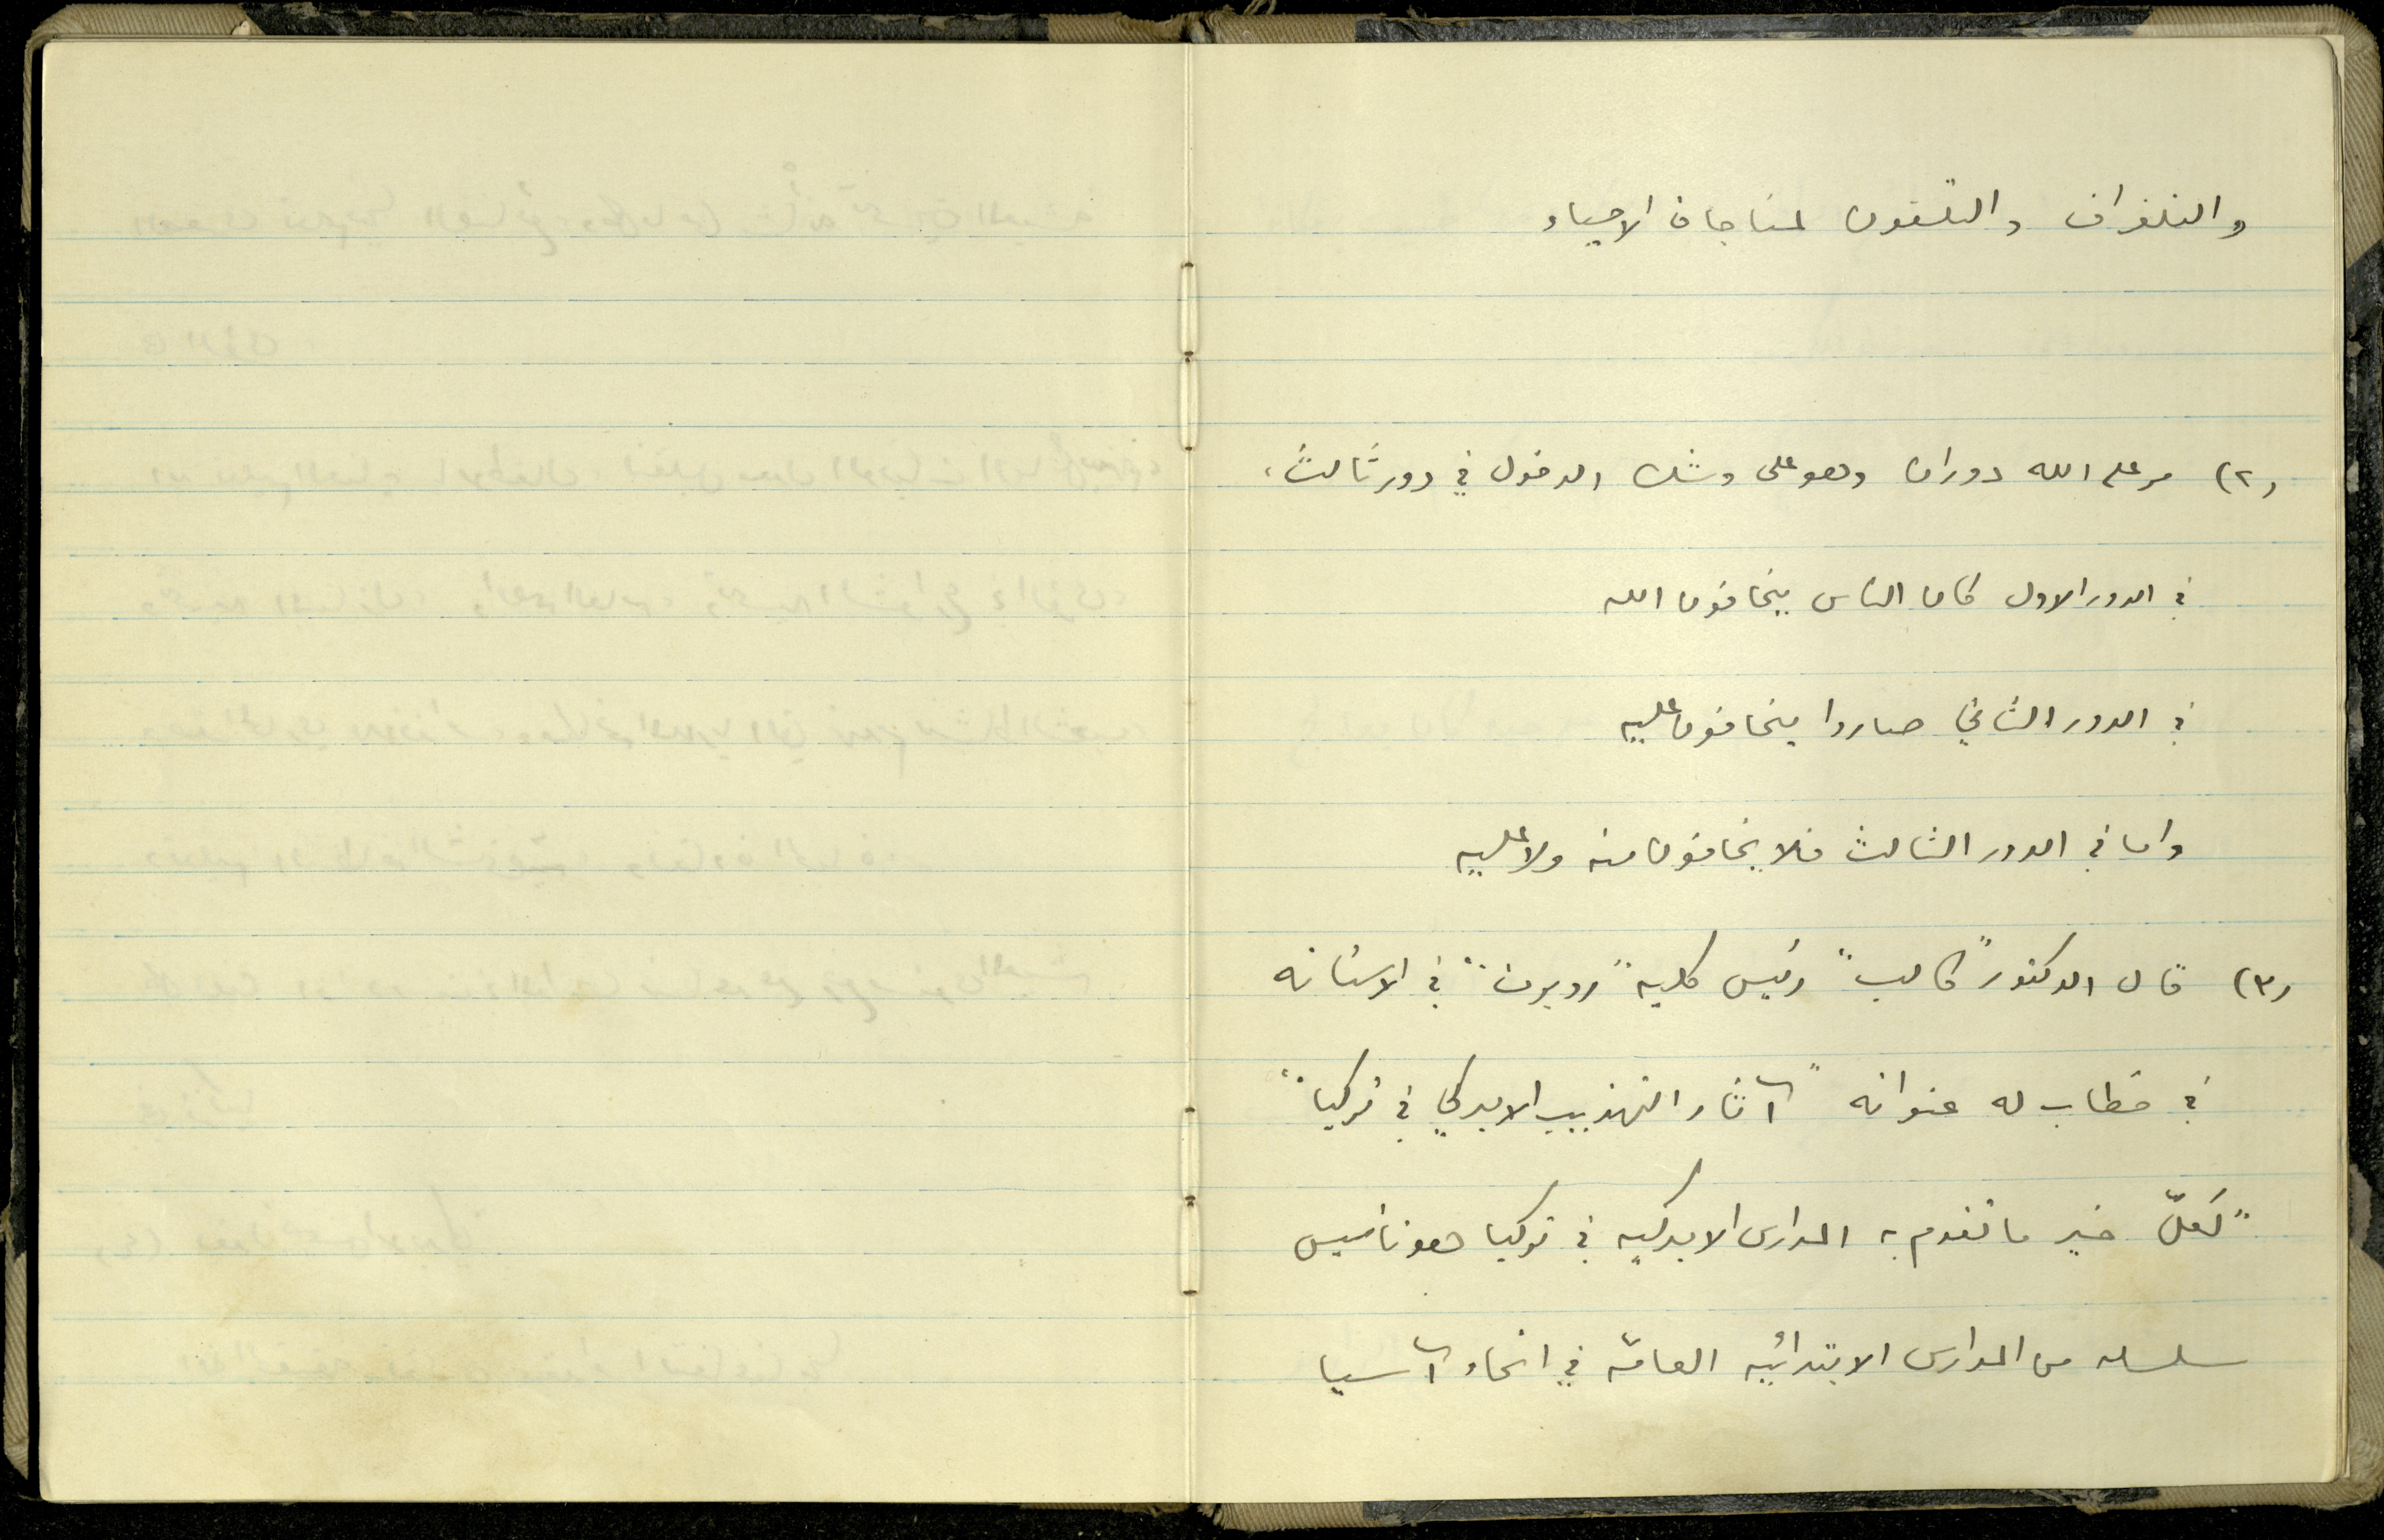 والتلغراف والتلفون لمناجاة الاحياء
(٢) مر على الله دوران وهو على وشك الدخول في دور ثالث،
في الدور الاول كان الناس يخافون الله
في الدور الثاني صاروا يخافون عليه
واما في الدور الثالث فلا يخافون منه ولا عليه
(٣) قال الدكتور "كالب" رئيس كلية "روبرت" في الاستانه
في خطاب له عنوانه "آثار التهذيب الاميركي في تركيا"
"لعلّ خير ما تقوم به المدارس الاميركيه في تركيا هو تاسيس
سلسله من المدارس الابتدائيه العامّه في انحاء آسيا